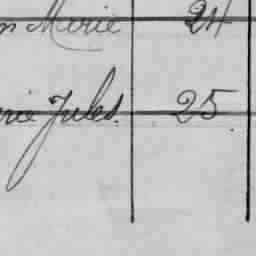 n Marie 24
rie Jules. 25.